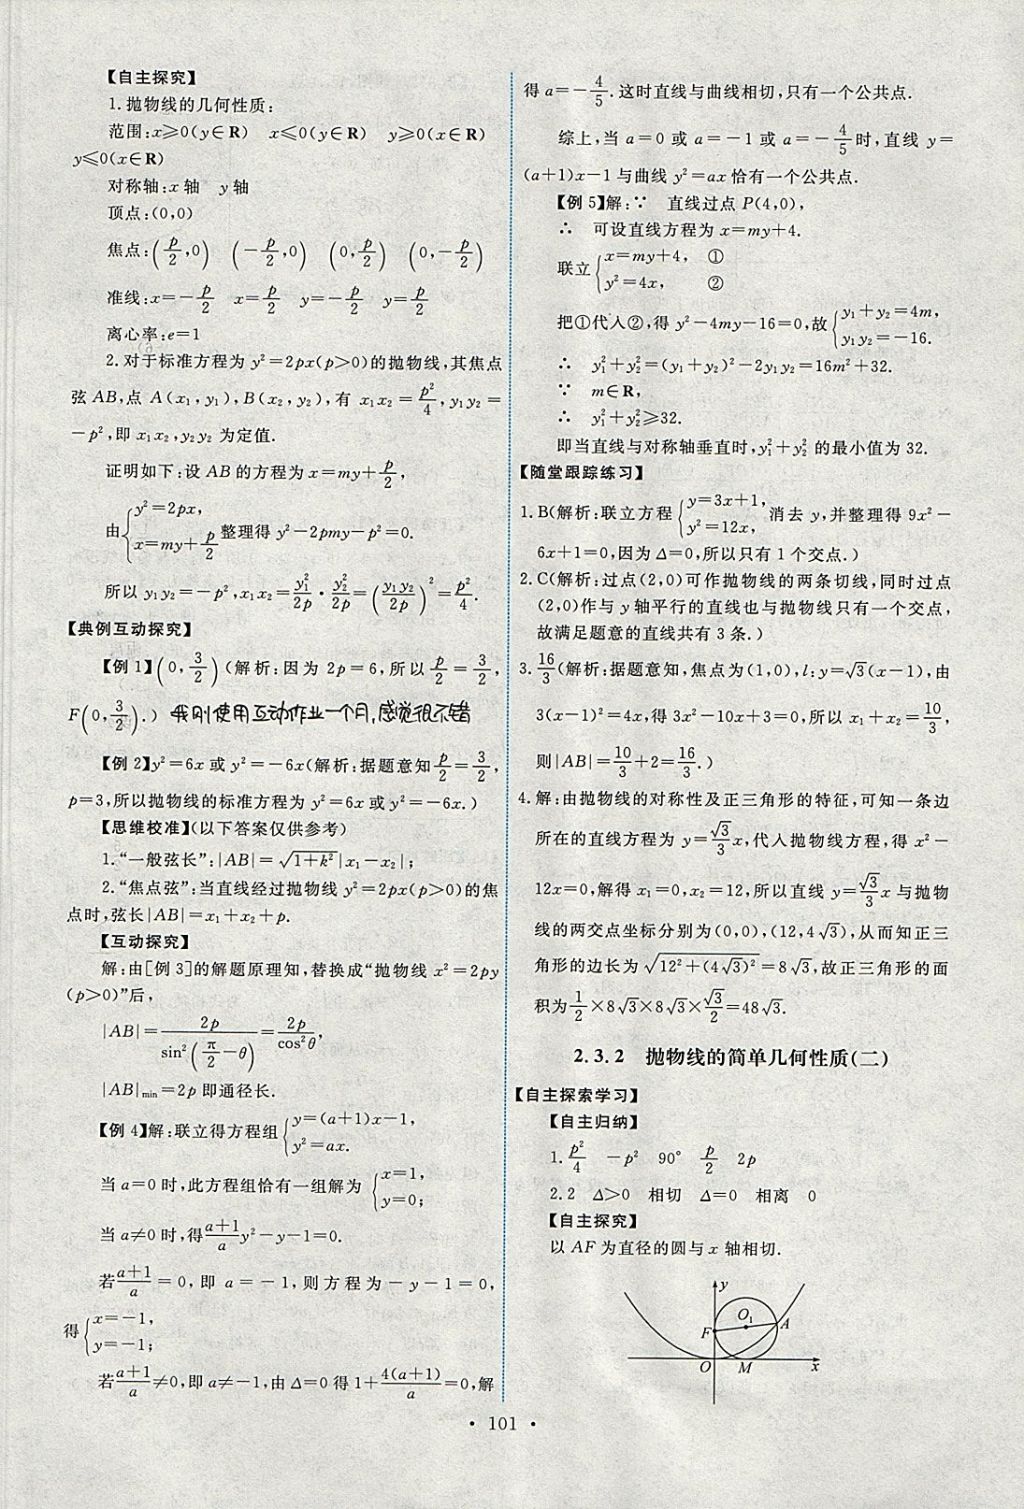 【自主探究】
1.抛物线的几何性质:
范围:x⩾0(y∈R)　x⩽0(y∈R)　y⩾0(x∈R)
y⩽0(x∈R)
对称轴:x 轴　y 轴
顶点:(0,0)
焦点:(p/2,0)　(-p/2,0)　(0,p/2)　(0,-p/2)
准线:x=-p/2　x=p/2　y=-p/2　y=p/2
离心率:e=1
2.对于标准方程为 y²=2px(p>0)的抛物线,其焦点
弦 AB,点 A(x₁,y₁),B(x₂,y₂),有 x₁x₂=p²/4,y₁y₂=
-p²,即 x₁x₂,y₂y₂ 为定值.
证明如下:设 AB 的方程为 x=my+p/2,
由{y²=2px, x=my+p/2 整理得 y²-2pmy-p²=0.
所以 y₁y₂=-p²,x₁x₂=y₁²/2p·y₂²/2p=(y₁y₂/2p)²=p²/4.
【典例互动探究】
【例 1】(0,3/2)(解析:因为 2p=6,所以 p/2=3/2,
F(0,3/2).) 我刚使用互动作业一个月,感觉很不错
【例 2】y²=6x 或 y²=-6x(解析:据题意知 p/2=3/2,
p=3,所以抛物线的标准方程为 y²=6x 或 y²=-6x.)
【思维校准】(以下答案仅供参考)
1.“一般弦长”:|AB|=√(1+k²)|x₁-x₂|;
2.“焦点弦”:当直线经过抛物线 y²=2px(p>0)的焦
点时,弦长|AB|=x₁+x₂+p.
【互动探究】
解:由[例 3]的解题原理知,替换成“抛物线 x²=2py
(p>0)”后,
|AB|=2p/sin²(π/2-θ)=2p/cos²θ,
|AB|min=2p 即通径长.
【例 4】解:联立得方程组{y=(a+1)x-1, y²=ax.
当 a=0 时,此方程组恰有一组解为 {x=1, y=0;
当 a≠0 时,得(a+1)/a y²-y-1=0.
若(a+1)/a=0,即 a=-1,则方程为-y-1=0,
得{x=-1, y=-1;
若(a+1)/a≠0,即 a≠-1,由 Δ=0 得 1+4(a+1)/a=0,解
得 a=-4/5.这时直线与曲线相切,只有一个公共点.
综上,当 a=0 或 a=-1 或 a=-4/5时,直线 y=
(a+1)x-1 与曲线 y²=ax 恰有一个公共点.
【例 5】解:∵　直线过点 P(4,0),
∴　可设直线方程为 x=my+4.
联立{x=my+4,　① y²=4x,　②
把①代人②,得 y²-4my-16=0,故{y₁+y₂=4m, y₁y₂=-16.
∴　y₁²+y₂²=(y₁+y₂)²-2y₁y₂=16m²+32.
∵　m∈R,
∴　y₁²+y₂²⩾32.
即当直线与对称轴垂直时,y₁²+y₂² 的最小值为 32.
【随堂跟踪练习】
1.B(解析:联立方程{y=3x+1, y²=12x, 消去 y,并整理得 9x²-
6x+1=0,因为 Δ=0,所以只有 1 个交点.)
2.C(解析:过点(2,0)可作抛物线的两条切线,同时过点
(2,0)作与 y 轴平行的直线也与抛物线只有一个交点,
故满足题意的直线共有 3 条.)
3.16/3(解析:据题意知,焦点为(1,0),l:y=√3(x-1),由
3(x-1)²=4x,得 3x²-10x+3=0,所以 x₁+x₂=10/3,
则|AB|=10/3+2=16/3.)
4.解:由抛物线的对称性及正三角形的特征,可知一条边
所在的直线方程为 y=√3/3x,代人抛物线方程,得 x²-
12x=0,解得 x₁=0,x₂=12,所以直线 y=√3/3x 与抛物
线的两交点坐标分别为(0,0),(12,4√3),从而知正三
角形的边长为√(12²+(4√3)²)=8√3,故正三角形的面
积为1/2×8√3×8√3×√3/2=48√3.
2.3.2　抛物线的简单几何性质(二)
【自主探索学习】
【自主归纳】
1.p²/4　-p²　90°　p/2　2p
2.2　Δ>0　相切　Δ=0　相离　0
【自主探究】
以 AF 为直径的圆与 x 轴相切.
y
O₁
A
F
O
M
x
· 101 ·